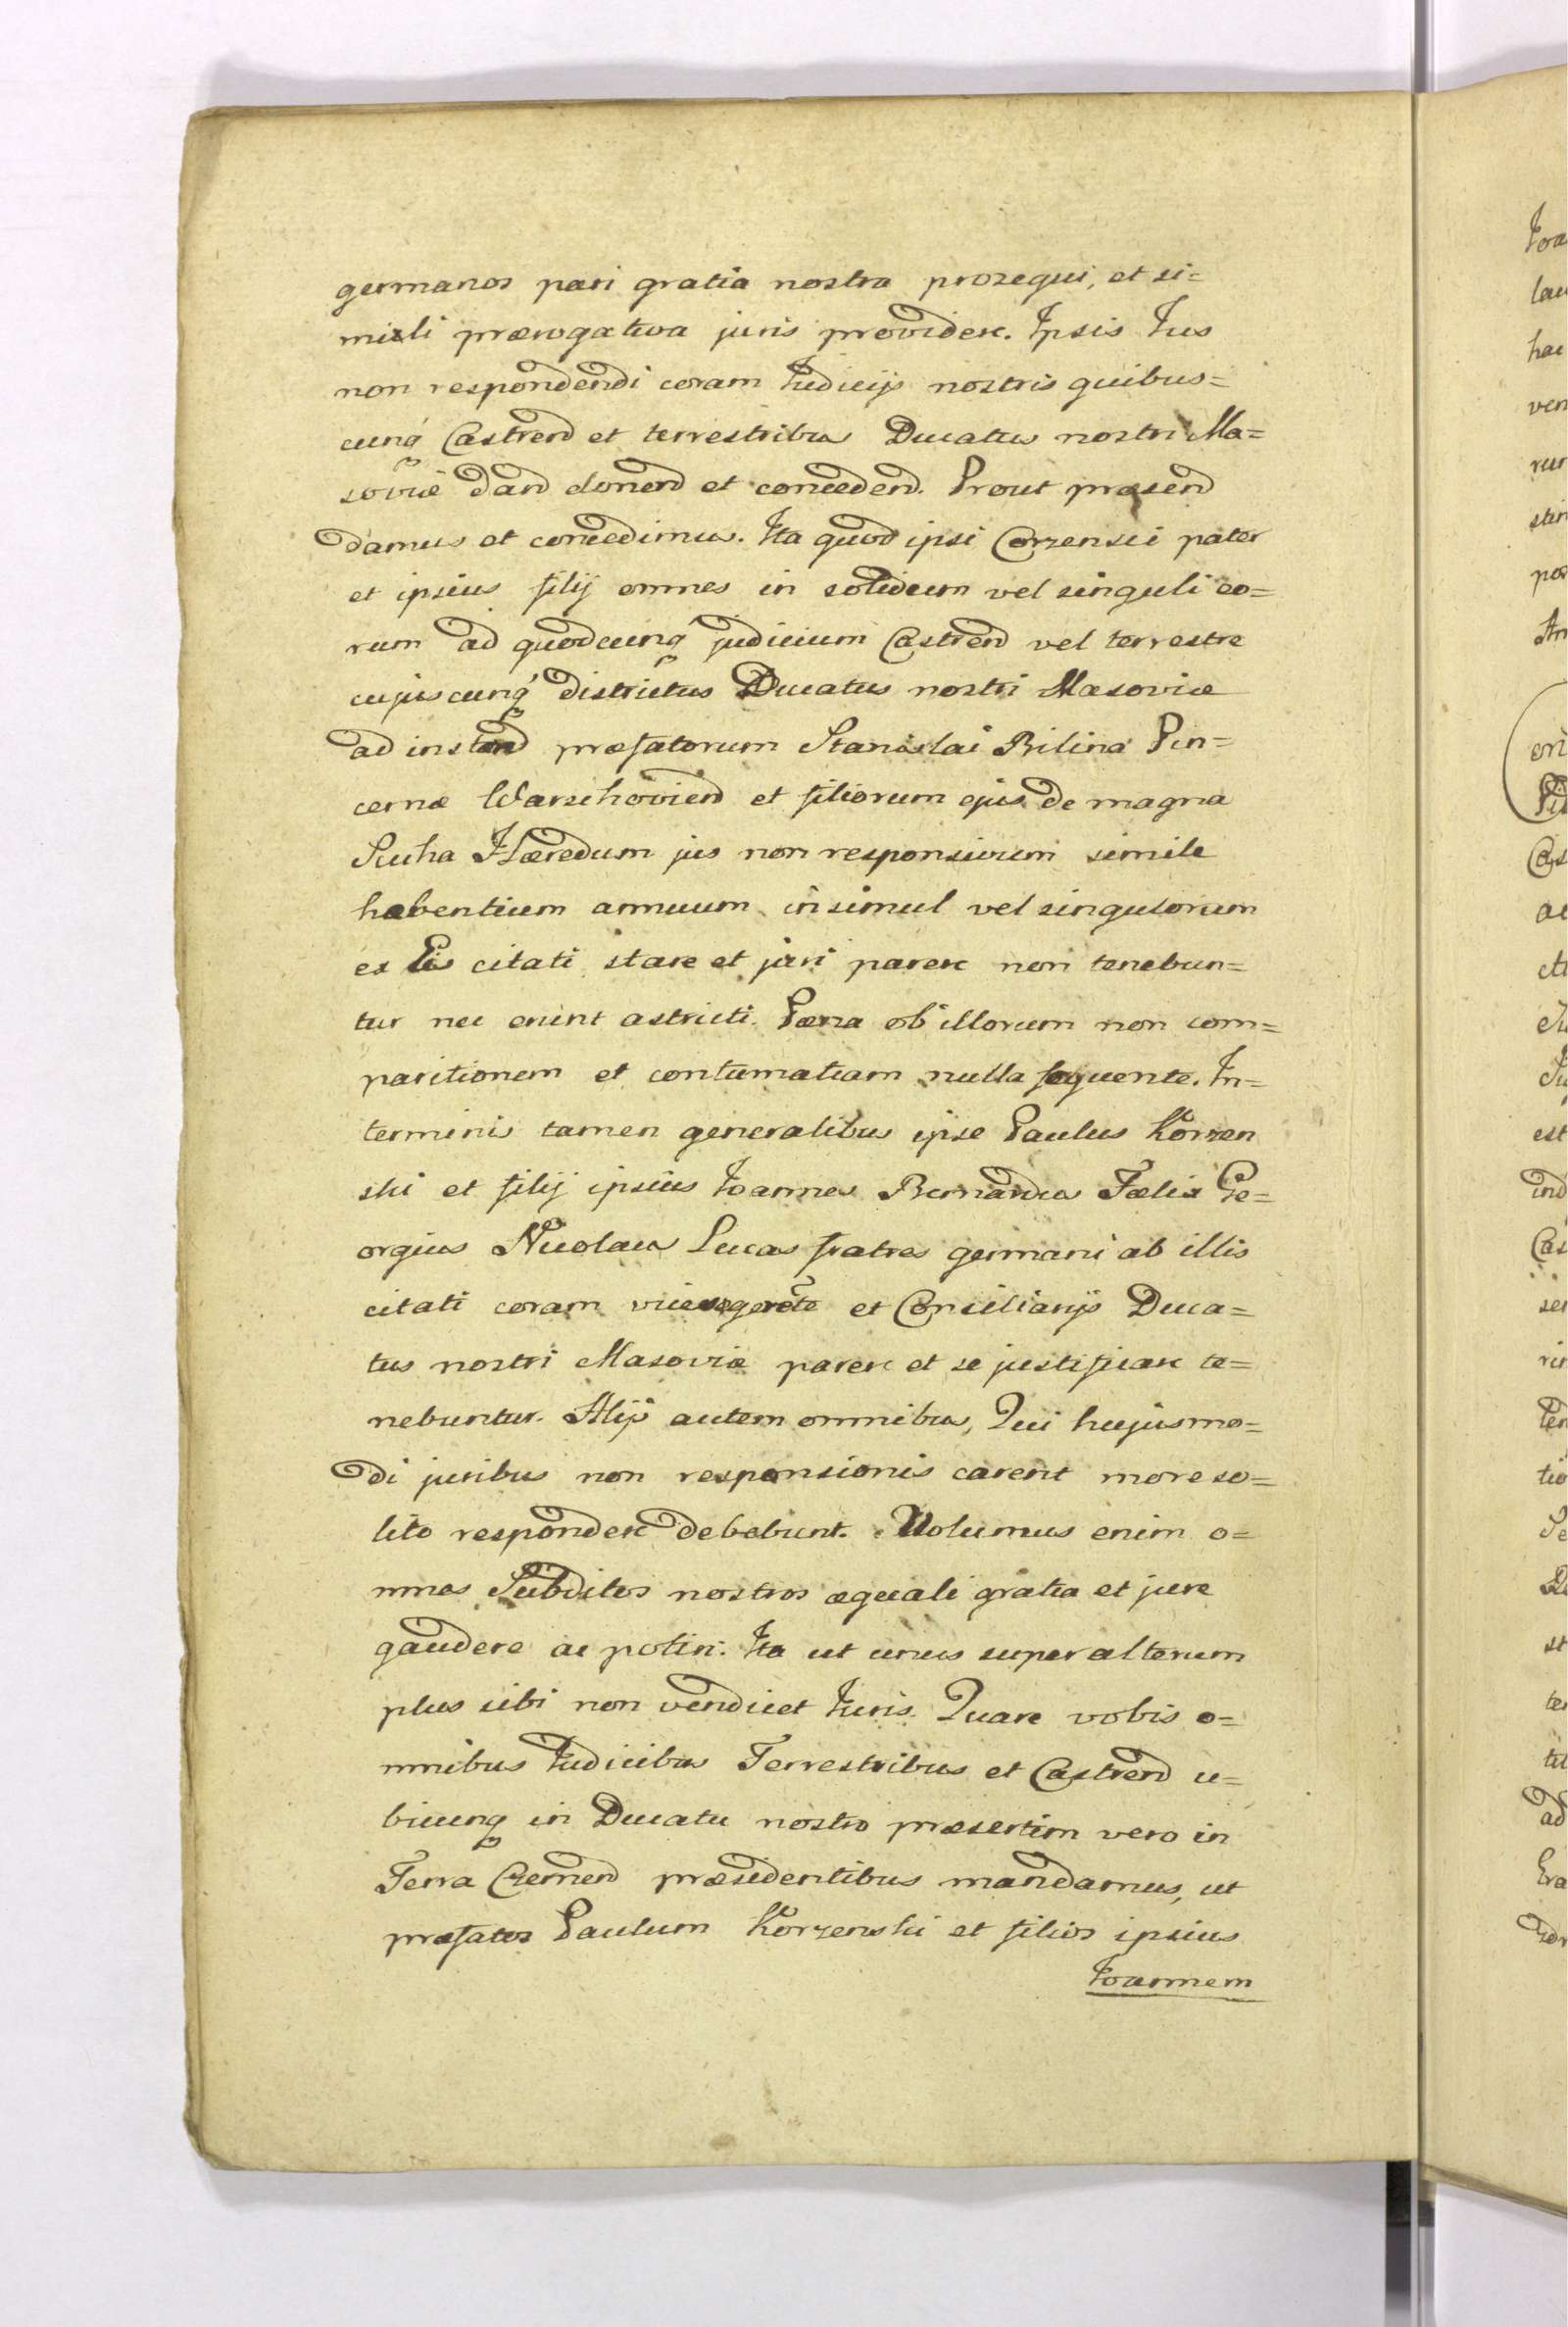 germanos pari gratia nostra prozequi, et si=
mili prærogativa juris providere. Ipsis Jus
non respondendi coram Judicijs nostris quibus=
cunq́ Castrend et terrestribus Ducatus nostri Ma=
soviæ dand donend et concedend. Prout præsend
damus et concedimus. Ita quod ipsi Corzensci pater
et ipsius filij omnes in solidum vel singuli eo=
rum ad quodcunq́ judicium Castrend vel terrestre
cujuscunq́ districtus Ducatus nostri Masoviæ
ad instand præfatorum Stanislai Bilina Pin=
cernæ Warschoviend et filiorum ejus de magna
Sucha Hæredum jus non responsivum simile
habentium annuum insimul vel singulorum
ex Eis citati stare et juri parere non tenebun=
tur nec erunt astricti. Pæna ob illorum non com=
paritionem et contumatiam nulla sequente. In=
terminis tamen generalibus ipse Paulus Korzen
ski et filij ipsius Joannes Bernardus Fælix Ge=
orgius Nicolaus Lucas fratres germani ab illis
citati coram vicesgerẽte et Consiliarijs Duca=
tus nostri Masoviæ parere et se justificare te=
nebuntur. Alijs autem omnibus, Qui hujusmo=
di juribus non responsionis carent more so=
lito respondere debebunt. Volumus enim o=
mnes Subditos nostros æquali gratia et jure
gaudere ac potiri. Ita ut unus super alterum
plus sibi non vendicet Juris. Quare vobis o=
mnibus Judicibus Terrestribus et Castrend u=
bicunq in Ducatu nostro præsertim vero in
Terra Czernend præsidentibus mandamus, ut
præfatos Paulum Korzenski et filios ipsius
Joannem